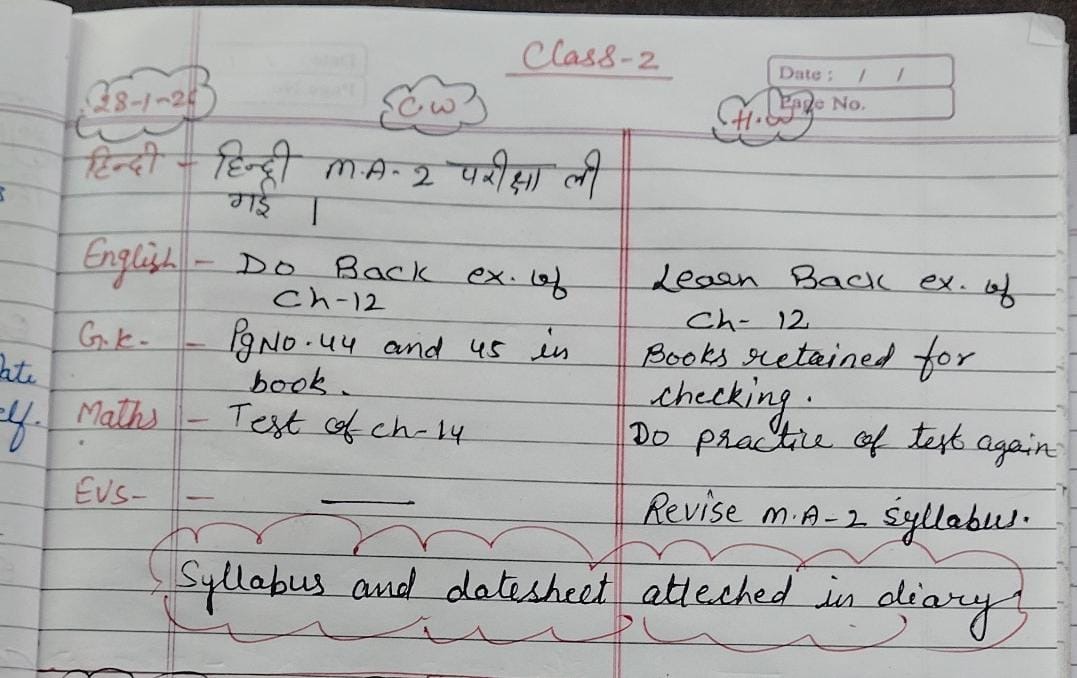 Class-2
Date : / /
Page No.
28-1-26
C.W
H.W
हिन्दी - हिन्दी M.A-2 परीक्षा ली
गई ।
English - Do Back ex. of
Ch-12
Learn Back ex. of
Ch- 12
G.K. - Pg No. 44 and 45 in
book.
Books retained for
checking.
Maths - Test of ch-14
Do practice of test again
EVS- - —
Revise M.A-2 syllabus.
Syllabus and datesheet atteched in diary
ate
elf.